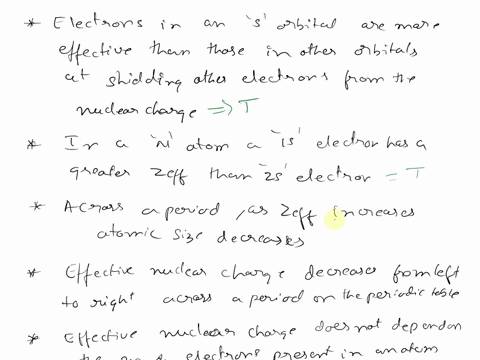 * Electrons in an 's' orbital are more
effective than those in other orbitals
at shidding other electrons from the
nuclear charge => T
* In a 'N' atom a '1s' electron has a
greater Zeff than '2s' electron = T
* Across a period, as Zeff increases
atomic size decreases
* Effective nuclear charge decreases from left
to right across a period on the periodic table
* Effective nuclear charge does not dependon
the no of electrons present in an atom